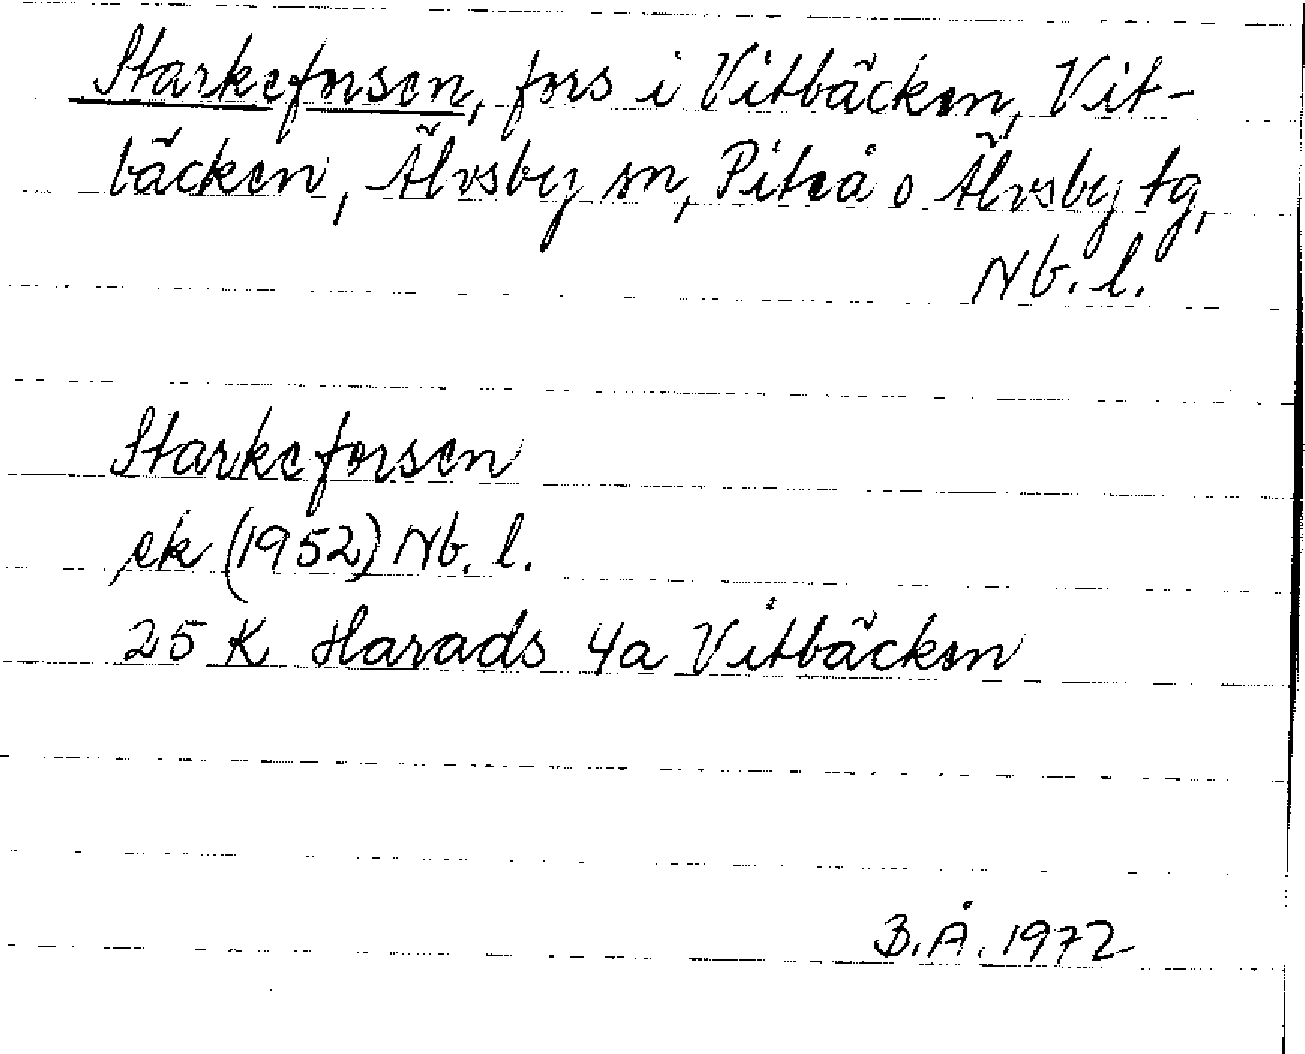 Starkeforsen, fors i Vitbäcken, Vit-
bäcken, Älvsby sn, Piteå o Älvsby tg,
Nb. l.
Starkeforsen
ek (1952) Nb. l.
25 K Harads 4a Vitbäcken
B.Å. 1972